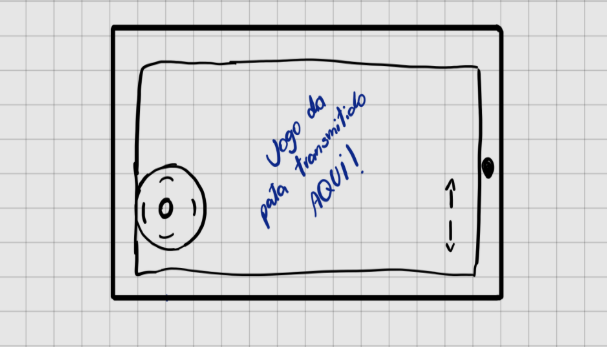 Jogo da
pata transmitido
AQUI!